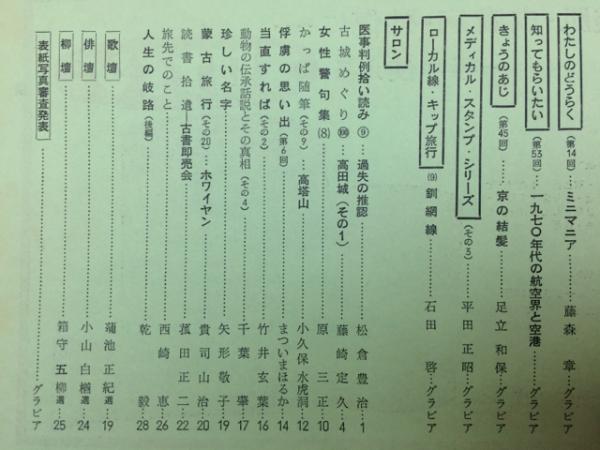 わたしのどうらく (第14回)…ミニマニア………藤森 章…グラビア
知ってもらいたい (第53回)…一九七〇年代の航空界と空港………グラビア
きょうのあじ (第45回)…京の結髪………足立 和保…グラビア
メディカル・スタンプ・シリーズ (その3)…平田 正昭…グラビア
ローカル線・キップ旅行 (9) 釧網線……石田 啓…グラビア
サロン
医事判例拾い読み ⑨…過失の推認………松倉豊治…1
古城めぐり (100)…高田城(その1)………藤崎定久…4
女性警句集(8)………原 三正…10
かっぱ随筆(その9)…高塔山………小久保水虎洞…12
俘虜の思い出(第6回)………まついまはるか…14
当直すれば(その2)………竹井玄葉…16
動物の伝承話説とその真相(その4)………千葉 肇…17
珍しい名字………矢形敬子…19
蒙古旅行(その20)…ホワイヤン………貴司山治…20
読書拾遺―古書即売会………菰田正二…22
旅先でのこと………西崎 恵…26
人生の岐路(後編)………乾 毅…28
歌壇………蒲池正紀選…19
俳壇………小山白楢選…24
柳壇………箱守五柳選…25
表紙写真審査発表………グラビア